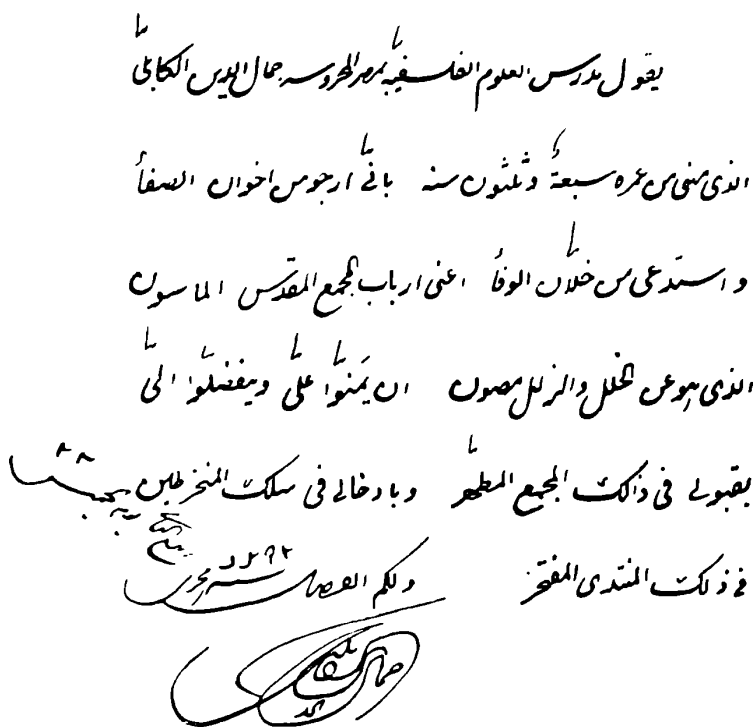 يقول مدرس العلوم الفلسفية بمصر المحروسه جمال الدين الكابلي
الذى مضى من عمره سبعة وثلثون سنه بانى ارجو من اخوان الصفا
و استدعى من خلان الوفا اعنى ارباب المجمع المقدس الماسون
الذى هو عن الخلل والزلل مصون ان يمنوا على ويتفضلوا الى
بقبولى فى ذالك المجمع المطهر و بادخالى فى سلك المنخرطين
فى ذلك المنتدى المفتخر ولكم الفضل
جمال الدين